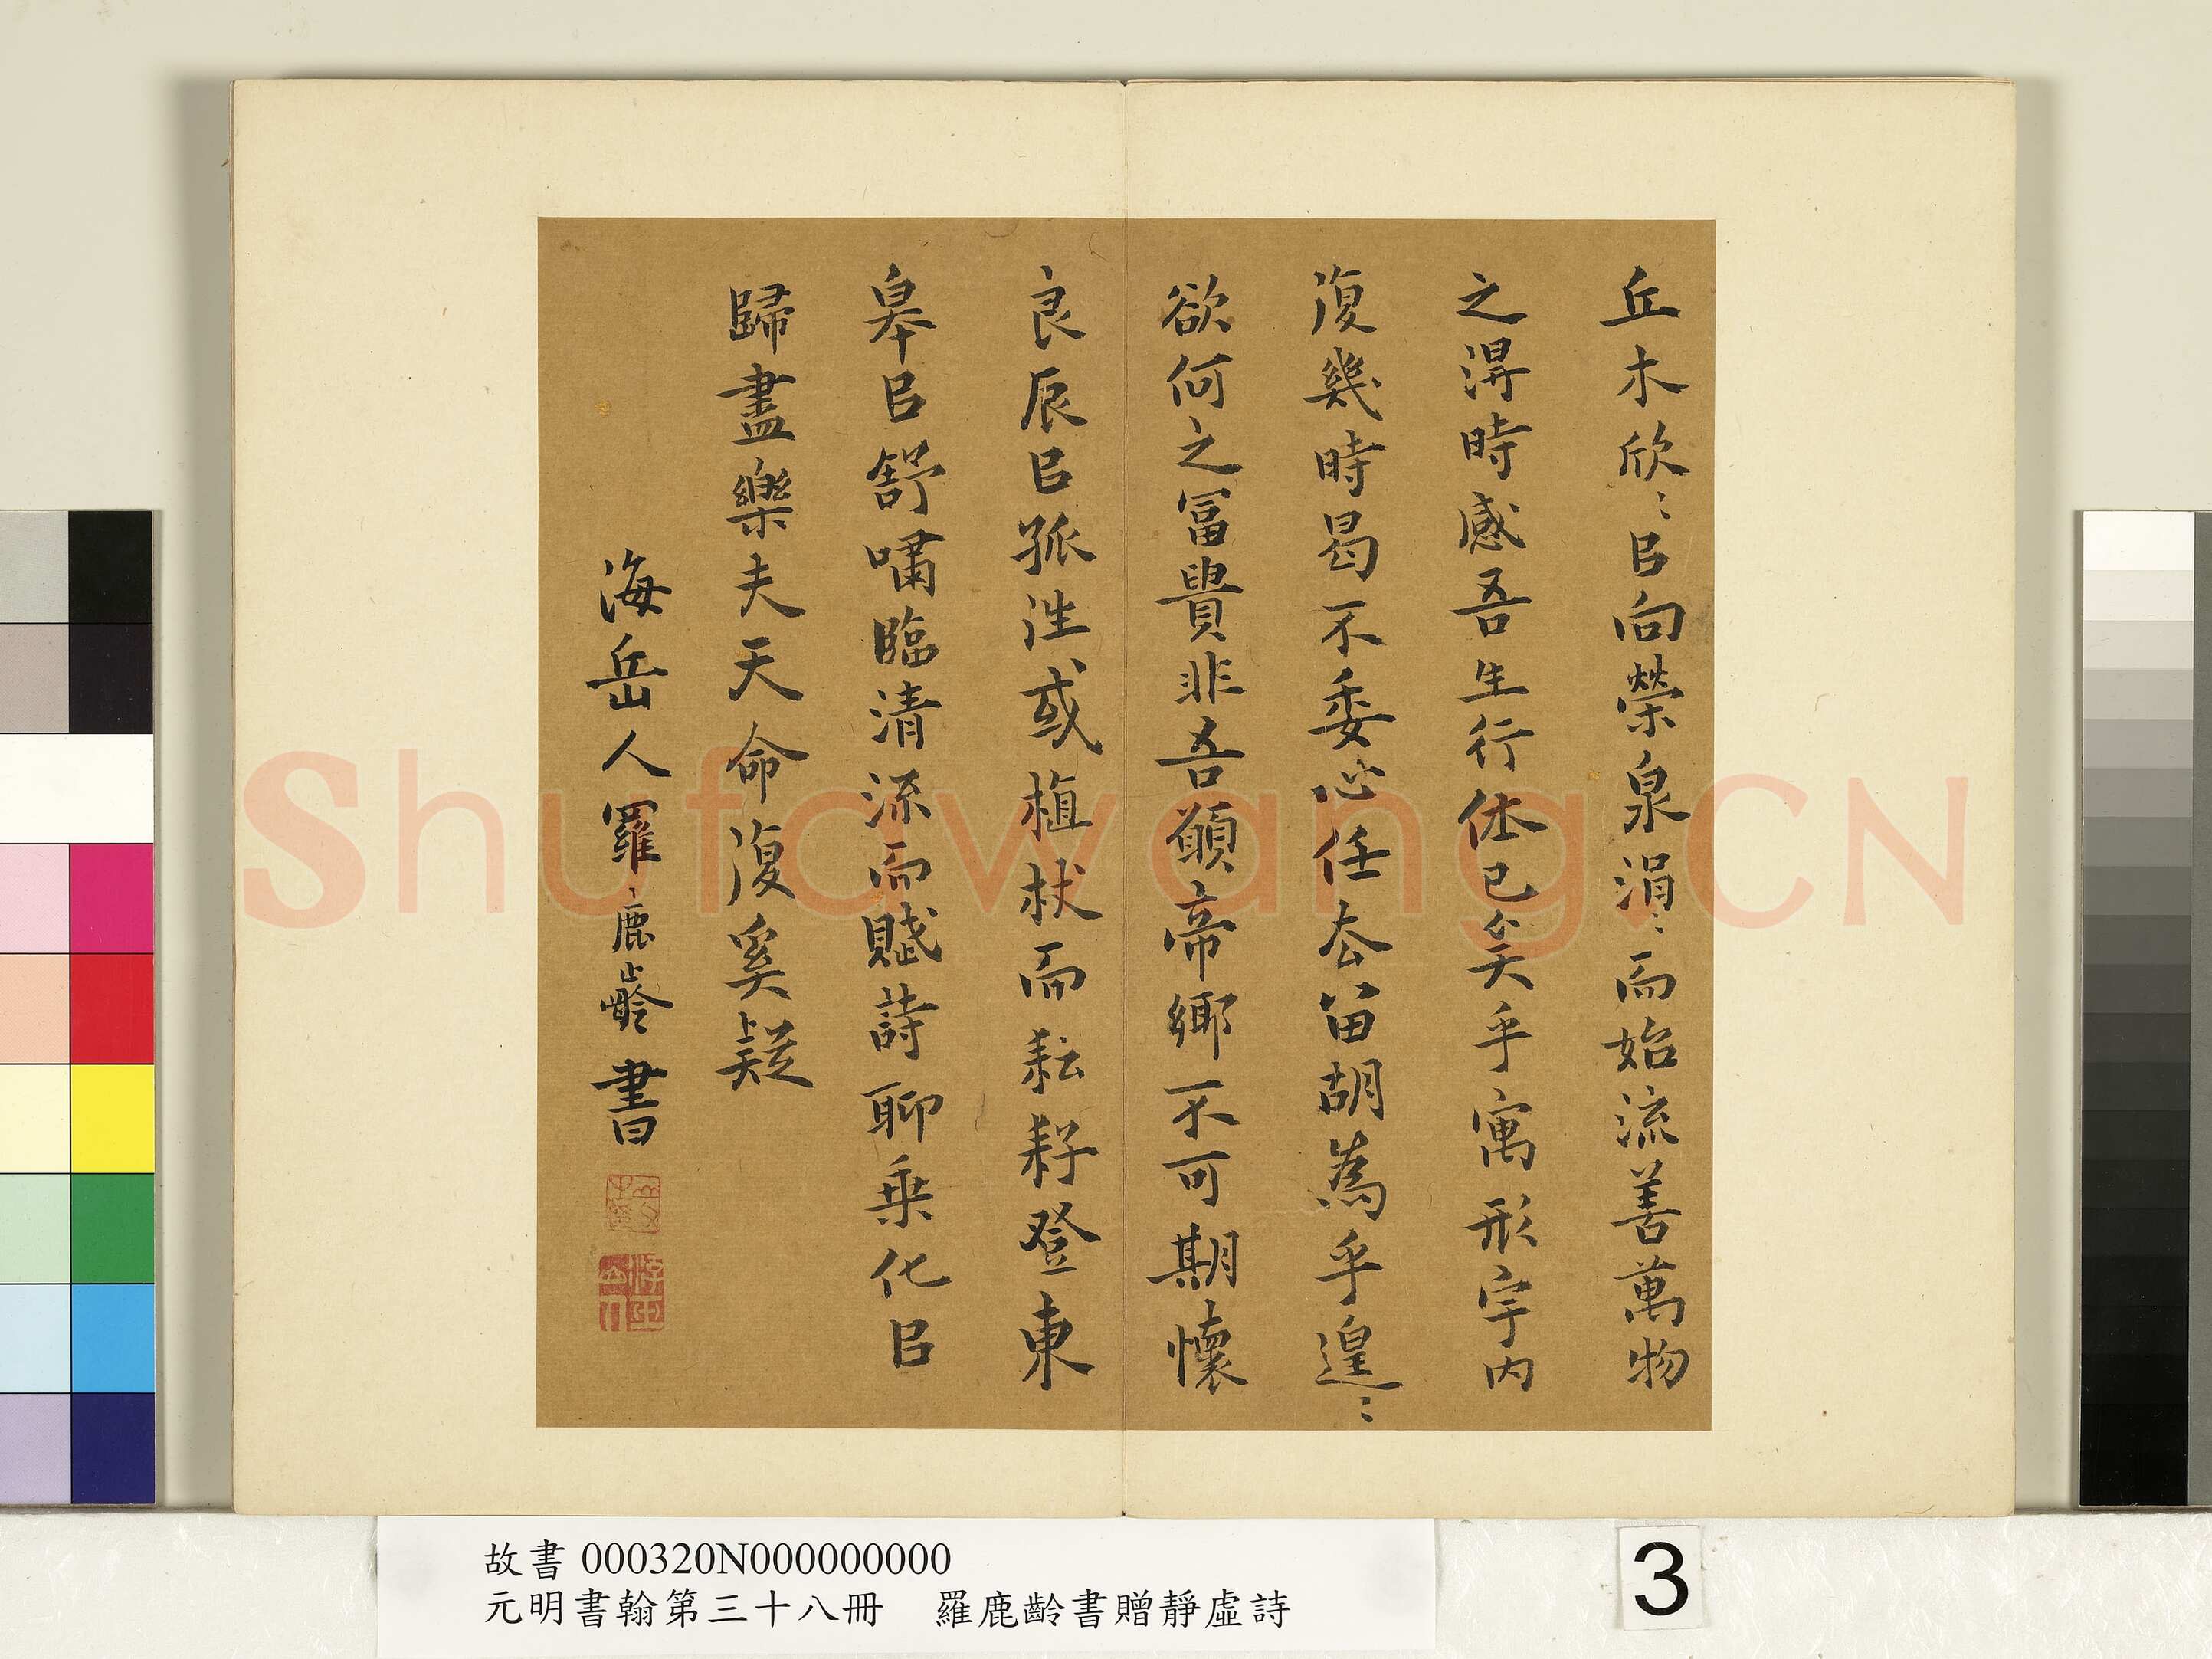 丘木欣〻㠯向榮泉涓〻而始流善萬物
之得時感吾生行休已矣乎寓形宇内
復幾時曷不委心任去留胡為乎遑〻
欲何之富貴非吾願帝鄉不可期懷
良辰㠯孤往或植杖而耘耔登東
皋㠯舒嘯臨清流而賦詩聊乗化㠯
歸盡樂夫天命復奚疑
海岳人羅鹿齡書
Shufawang.CN
故書 000320N000000000
元明書翰第三十八冊 羅鹿齡書贈靜虛詩
3